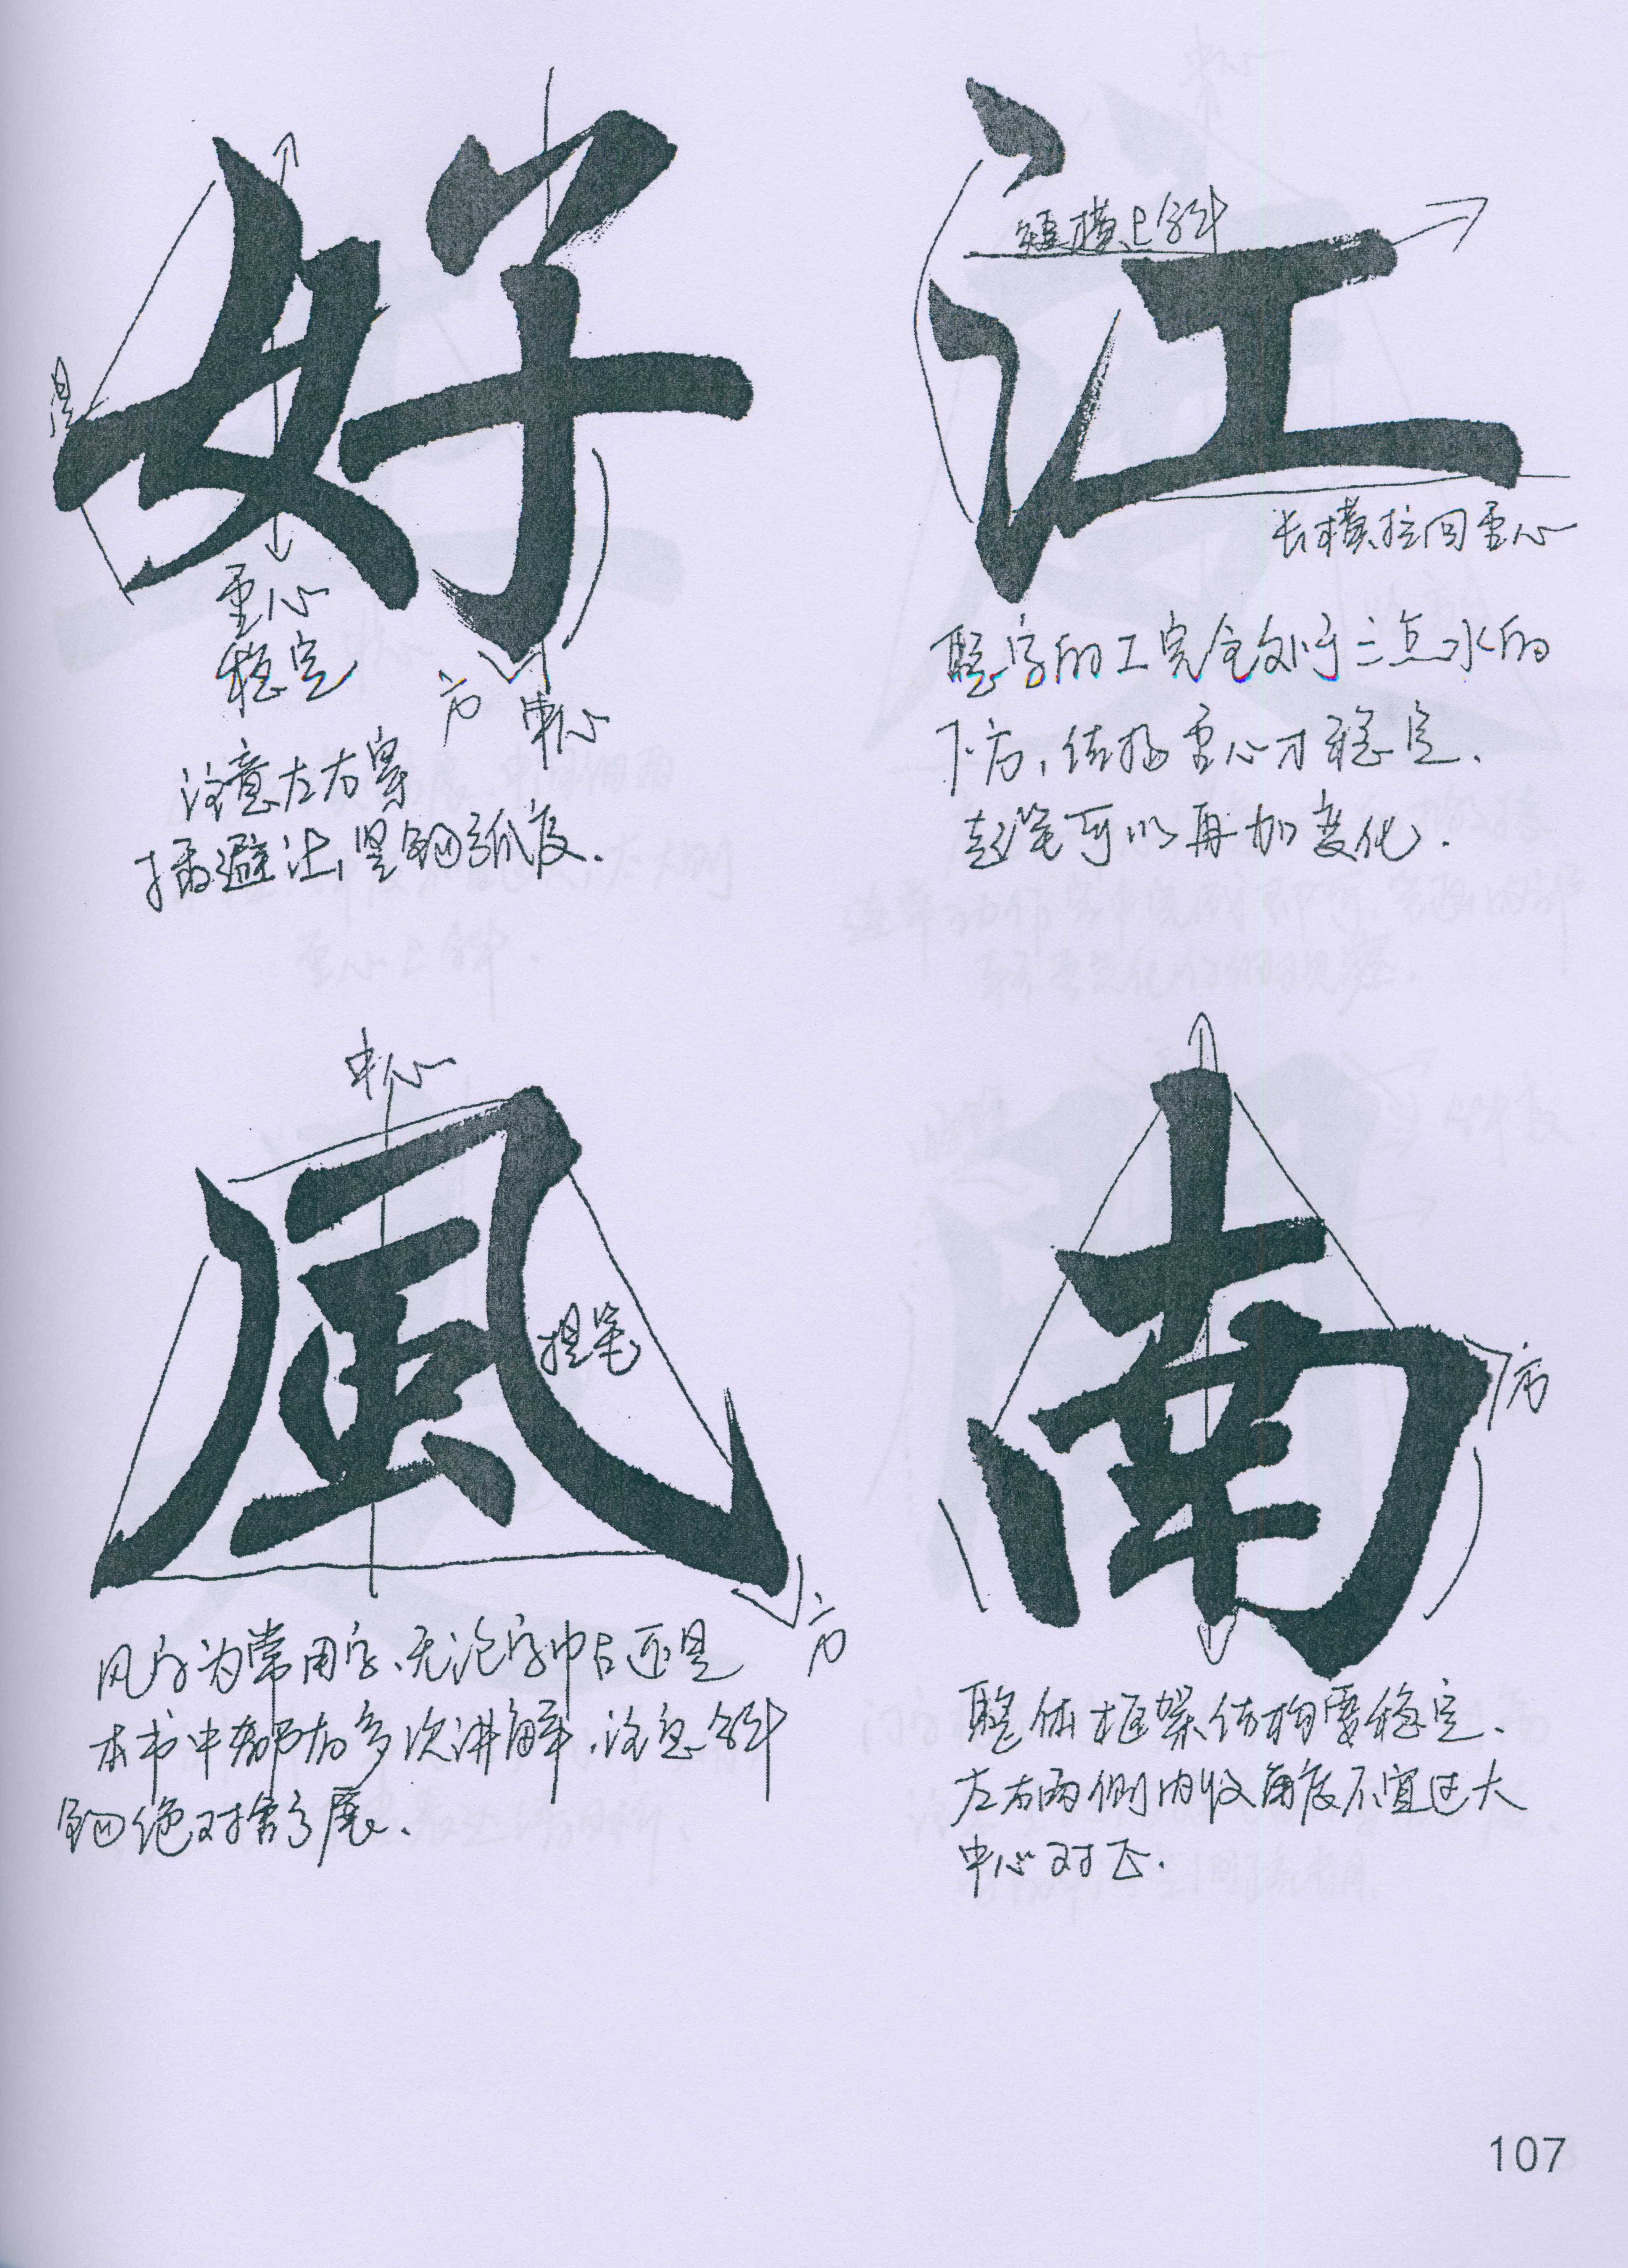 好
重心
稳定
方
中心
注意左右穿
插避让,竖钩弧度.
江
短横上斜
长横拉回重心
整字的工完全处于三点水的
下方,结构重心才稳定.
起笔可以再加变化.
風
中心
提笔
方
风字为常用字、无论字帖还是
本书中都有多次讲解.注意斜
钩绝对舒展.
南
方
整体框架结构要稳定、
左右两侧内收角度不宜过大
中心对正.
107